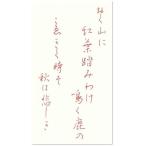 おく山に
紅葉踏みわけ
鳴く鹿の
こゑきく時そ
秋は悲しき